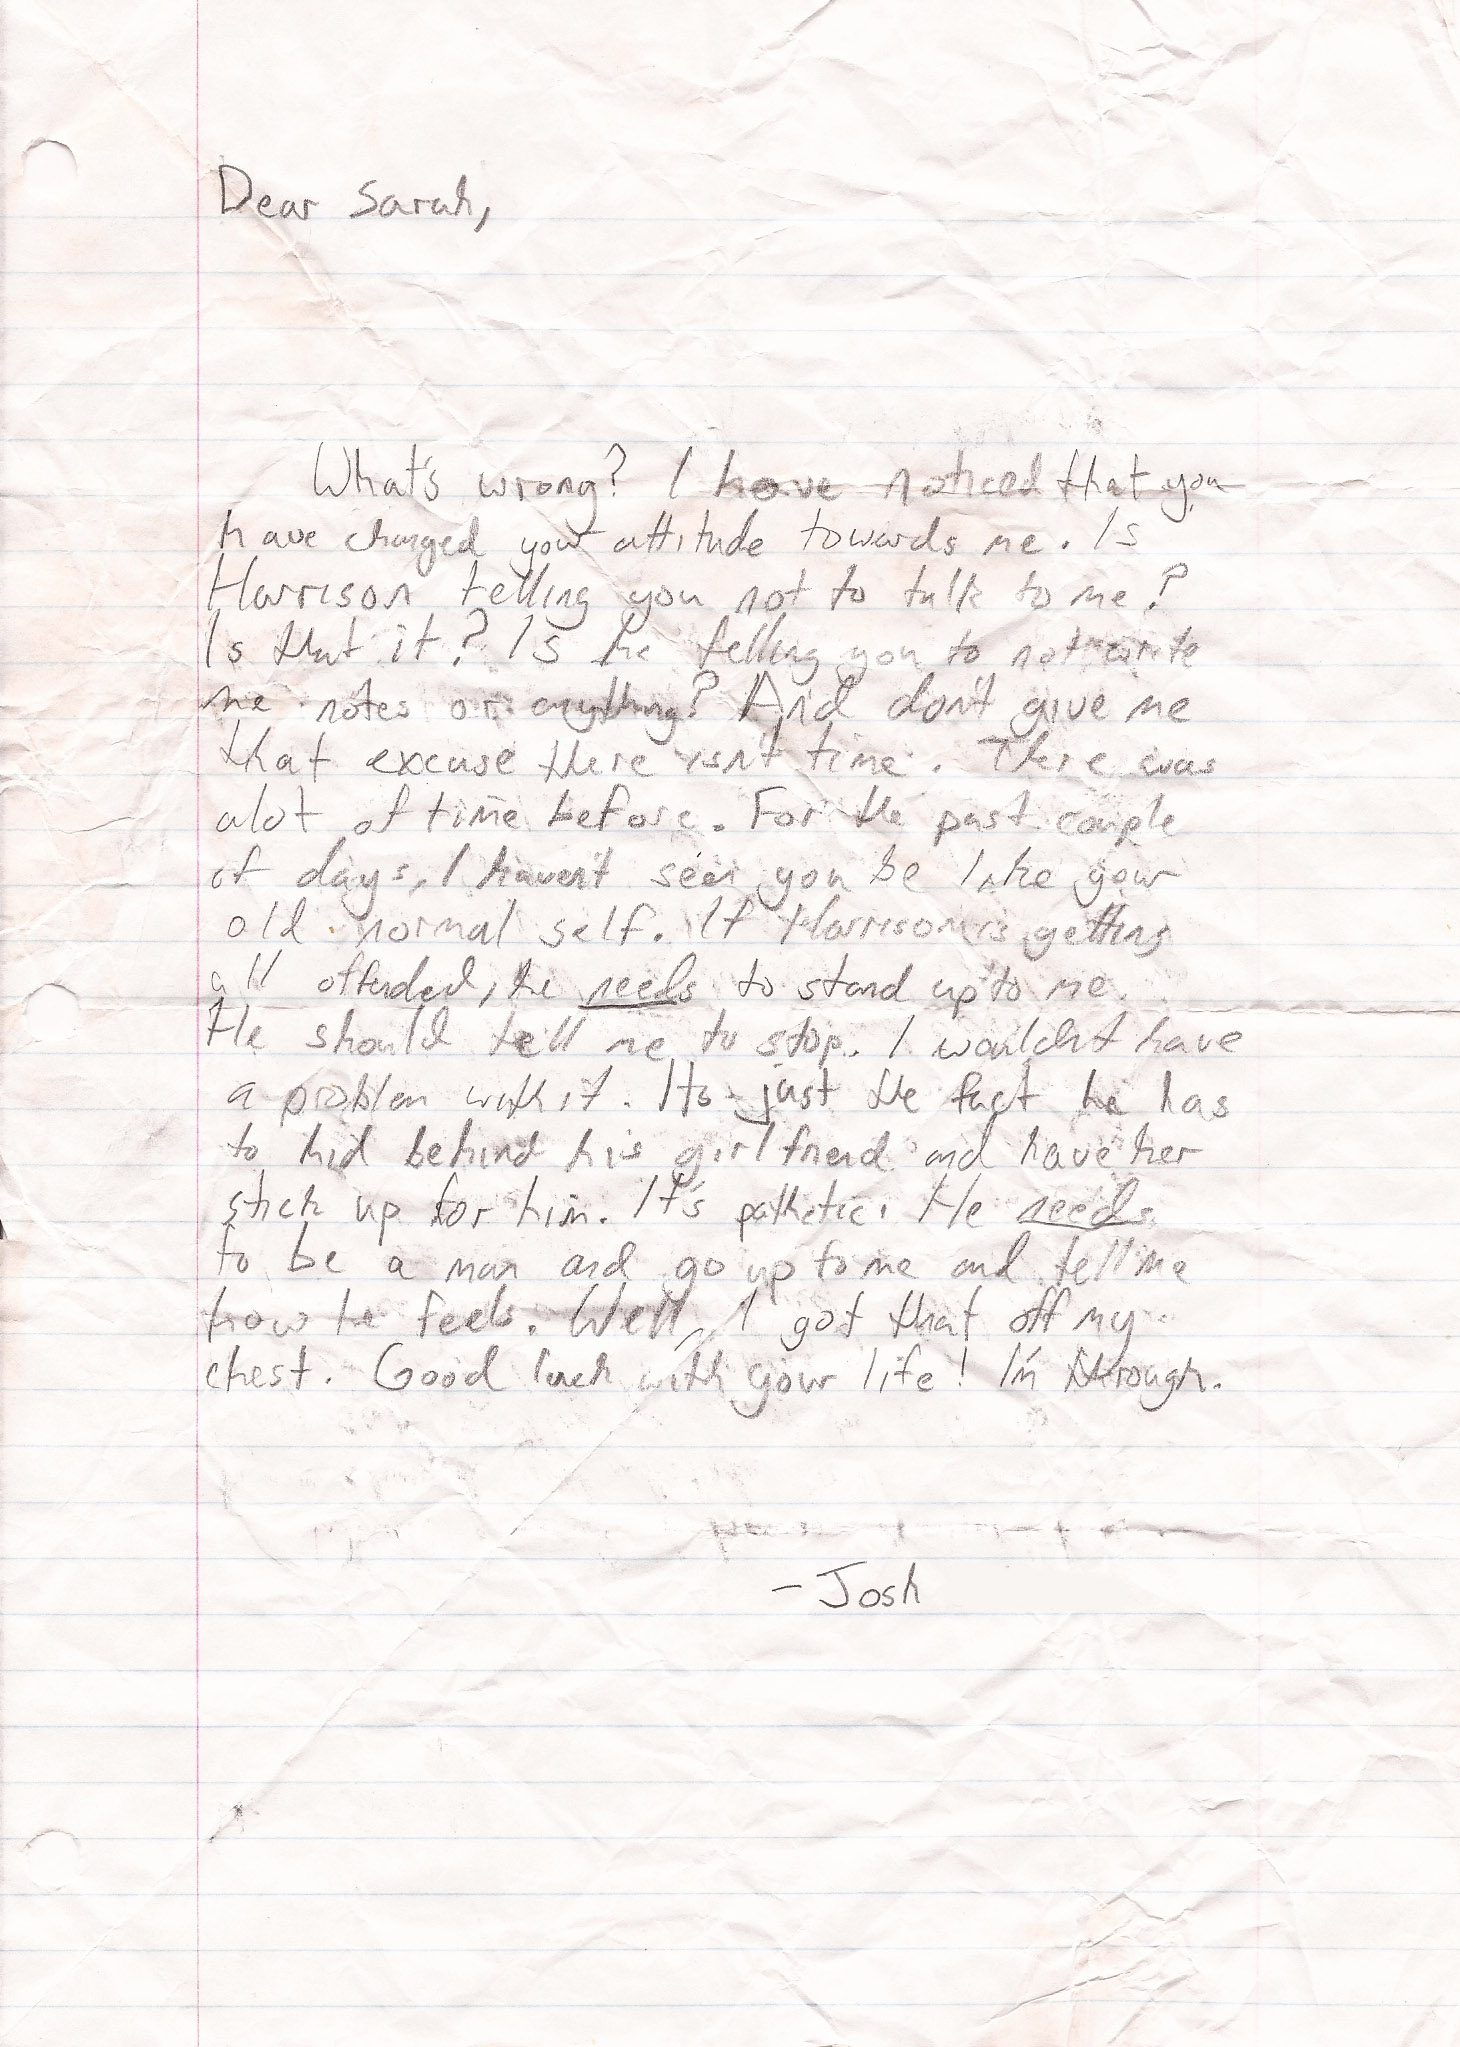 Dear Sarah,
What's wrong? I have noticed that you
have changed your attitude towards me. Is
Harrison telling you not to talk to me?
Is that it? Is he telling you to not write
me notes or anything? And don't give me
that excuse there isn't time. There was
alot of time before. For the past couple
of days, I haven't seen you be like your
old normal self. If Harrison is getting
all offended, he needs to stand up to me.
He should tell me to stop. I wouldn't have
a problem with it. Its just the fact he has
to hid behind his girlfriend and have her
stick up for him. It's pathetic. He needs
to be a man and go up to me and tell me
how he feels. Well, I got that off my
chest. Good luck with your life! I'm through.
- Josh